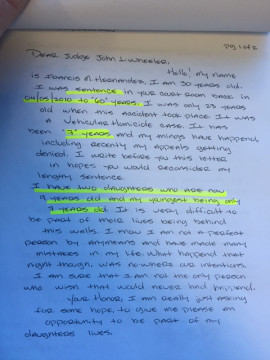 pg 1 of 2
Dear Judge John L. Wheeler,
Hello! my name
is Francis M. Hernandez. I am 30 years old.
I was sentence in your court room back in
04/05/2010 to "60" years. I was only 23 years
old when this accident took place. It was
a Vehicular Homicide case. It has
been "7" years and my things have happend
including recently my appeals getting
denied. I write before you this letter
in hopes you would reconsider my
lengthy sentence.
I have two daughters who are now
9 years old and my youngest being only
7 years old. It is very difficult to
be part of their lives being behind
this walls. I know I am not a perfect
person by anymeans and have made many
mistakes in my life. What happend that
night though, was nowhere our intentions.
I am sure that I am not the only person
who wish that would never had happend.
Your Honor, I am really just asking
for some hope, to give me please an
opportunity to be part of my
daughters lives.